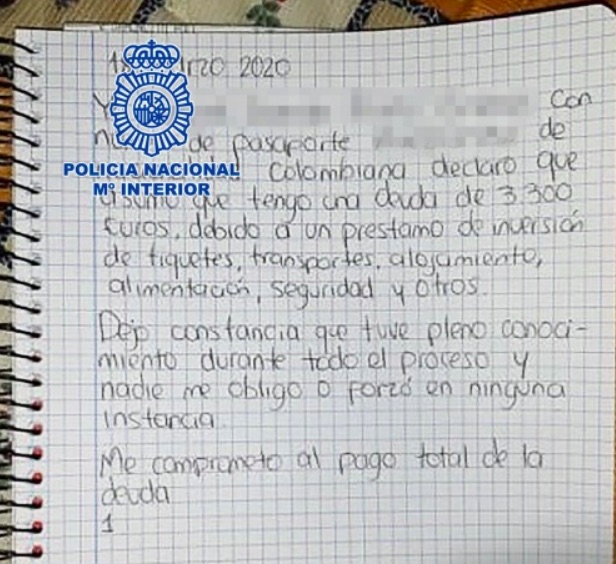 1 rzo 2020
Y Con
n de pasaporte de
POLICIA NACIONAL
Mº INTERIOR
Colombiana declaro que
asumo que tengo una deuda de 3.300
Euros, debido a un prestamo de inversión
de tiquetes, transportes, alojamiento,
alimentación, seguridad y otros.
Dejo constancia que tuve pleno conoci-
miento durante todo el proceso y
nadie me obligo o forzó en ninguna
instancia.
Me comprometo al pago total de la
deuda
1